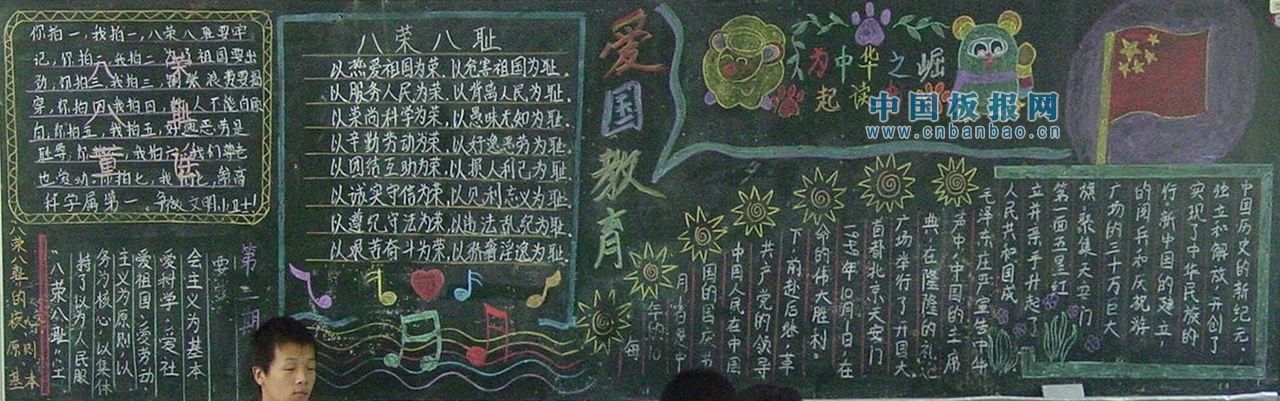 你拍一，我拍一，八荣八耻要牢
记，你拍二，我拍二，
动，你拍三，我拍三，
穿，你拍四，我拍四，
向，你拍五，我拍五，好逸恶劳是
也
科学属第一，
八荣八耻
以热爱祖国为荣，以危害祖国为耻。
以服务人民为荣，以背离人民为耻。
以崇尚科学为荣，以愚昧无知为耻。
以辛勤劳动为荣，以好逸恶劳为耻。
以团结互助为荣，以损人利己为耻。
以诚实守信为荣，以见利忘义为耻。
以遵纪守法为荣，以违法乱纪为耻。
以艰苦奋斗为荣，以骄奢淫逸为耻。
爱国教育
为中华之崛
起读
中国板报网
www.cnbanbao.cn
第二期
八荣八耻的
原则
基本
要
会主义为基本
爱科学、爱社
爱祖国、爱劳动
主义为原则、以
务为核心、以集体
持了以为人民服
“八荣八耻”
中国历史的新纪元。
独立和解放，开创了
实现了中华民族的
行新中国的建立
的阅兵和庆祝游
广场的三十万巨大
旗。聚集天安门
第一面五星红
立并亲手升起了
人民共和国成
毛泽东庄严宣告中华
声中，中国的主席
典，在隆隆的礼炮
广场举行了开国大
首都北京天安门
1949年10月1日，在
命的伟大胜利。
下，前赴后继，革
共产党的领导
中国人民在中国
国的国庆节
月1日是中
年的10
每